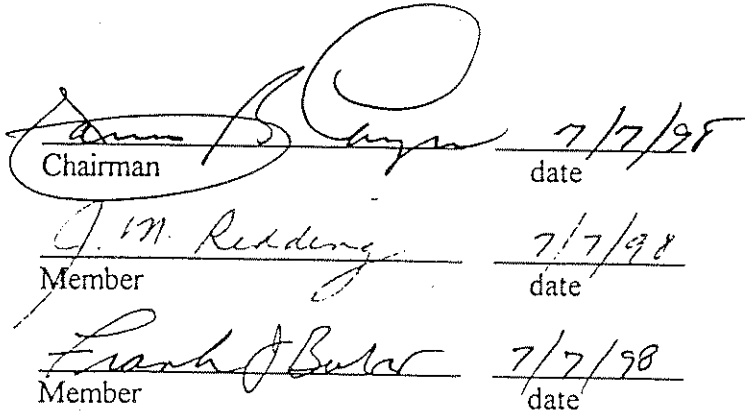 B 7/7/98
Chairman date
J. M. Redding 7/7/98
Member date
Frank J 7/7/98
Member date